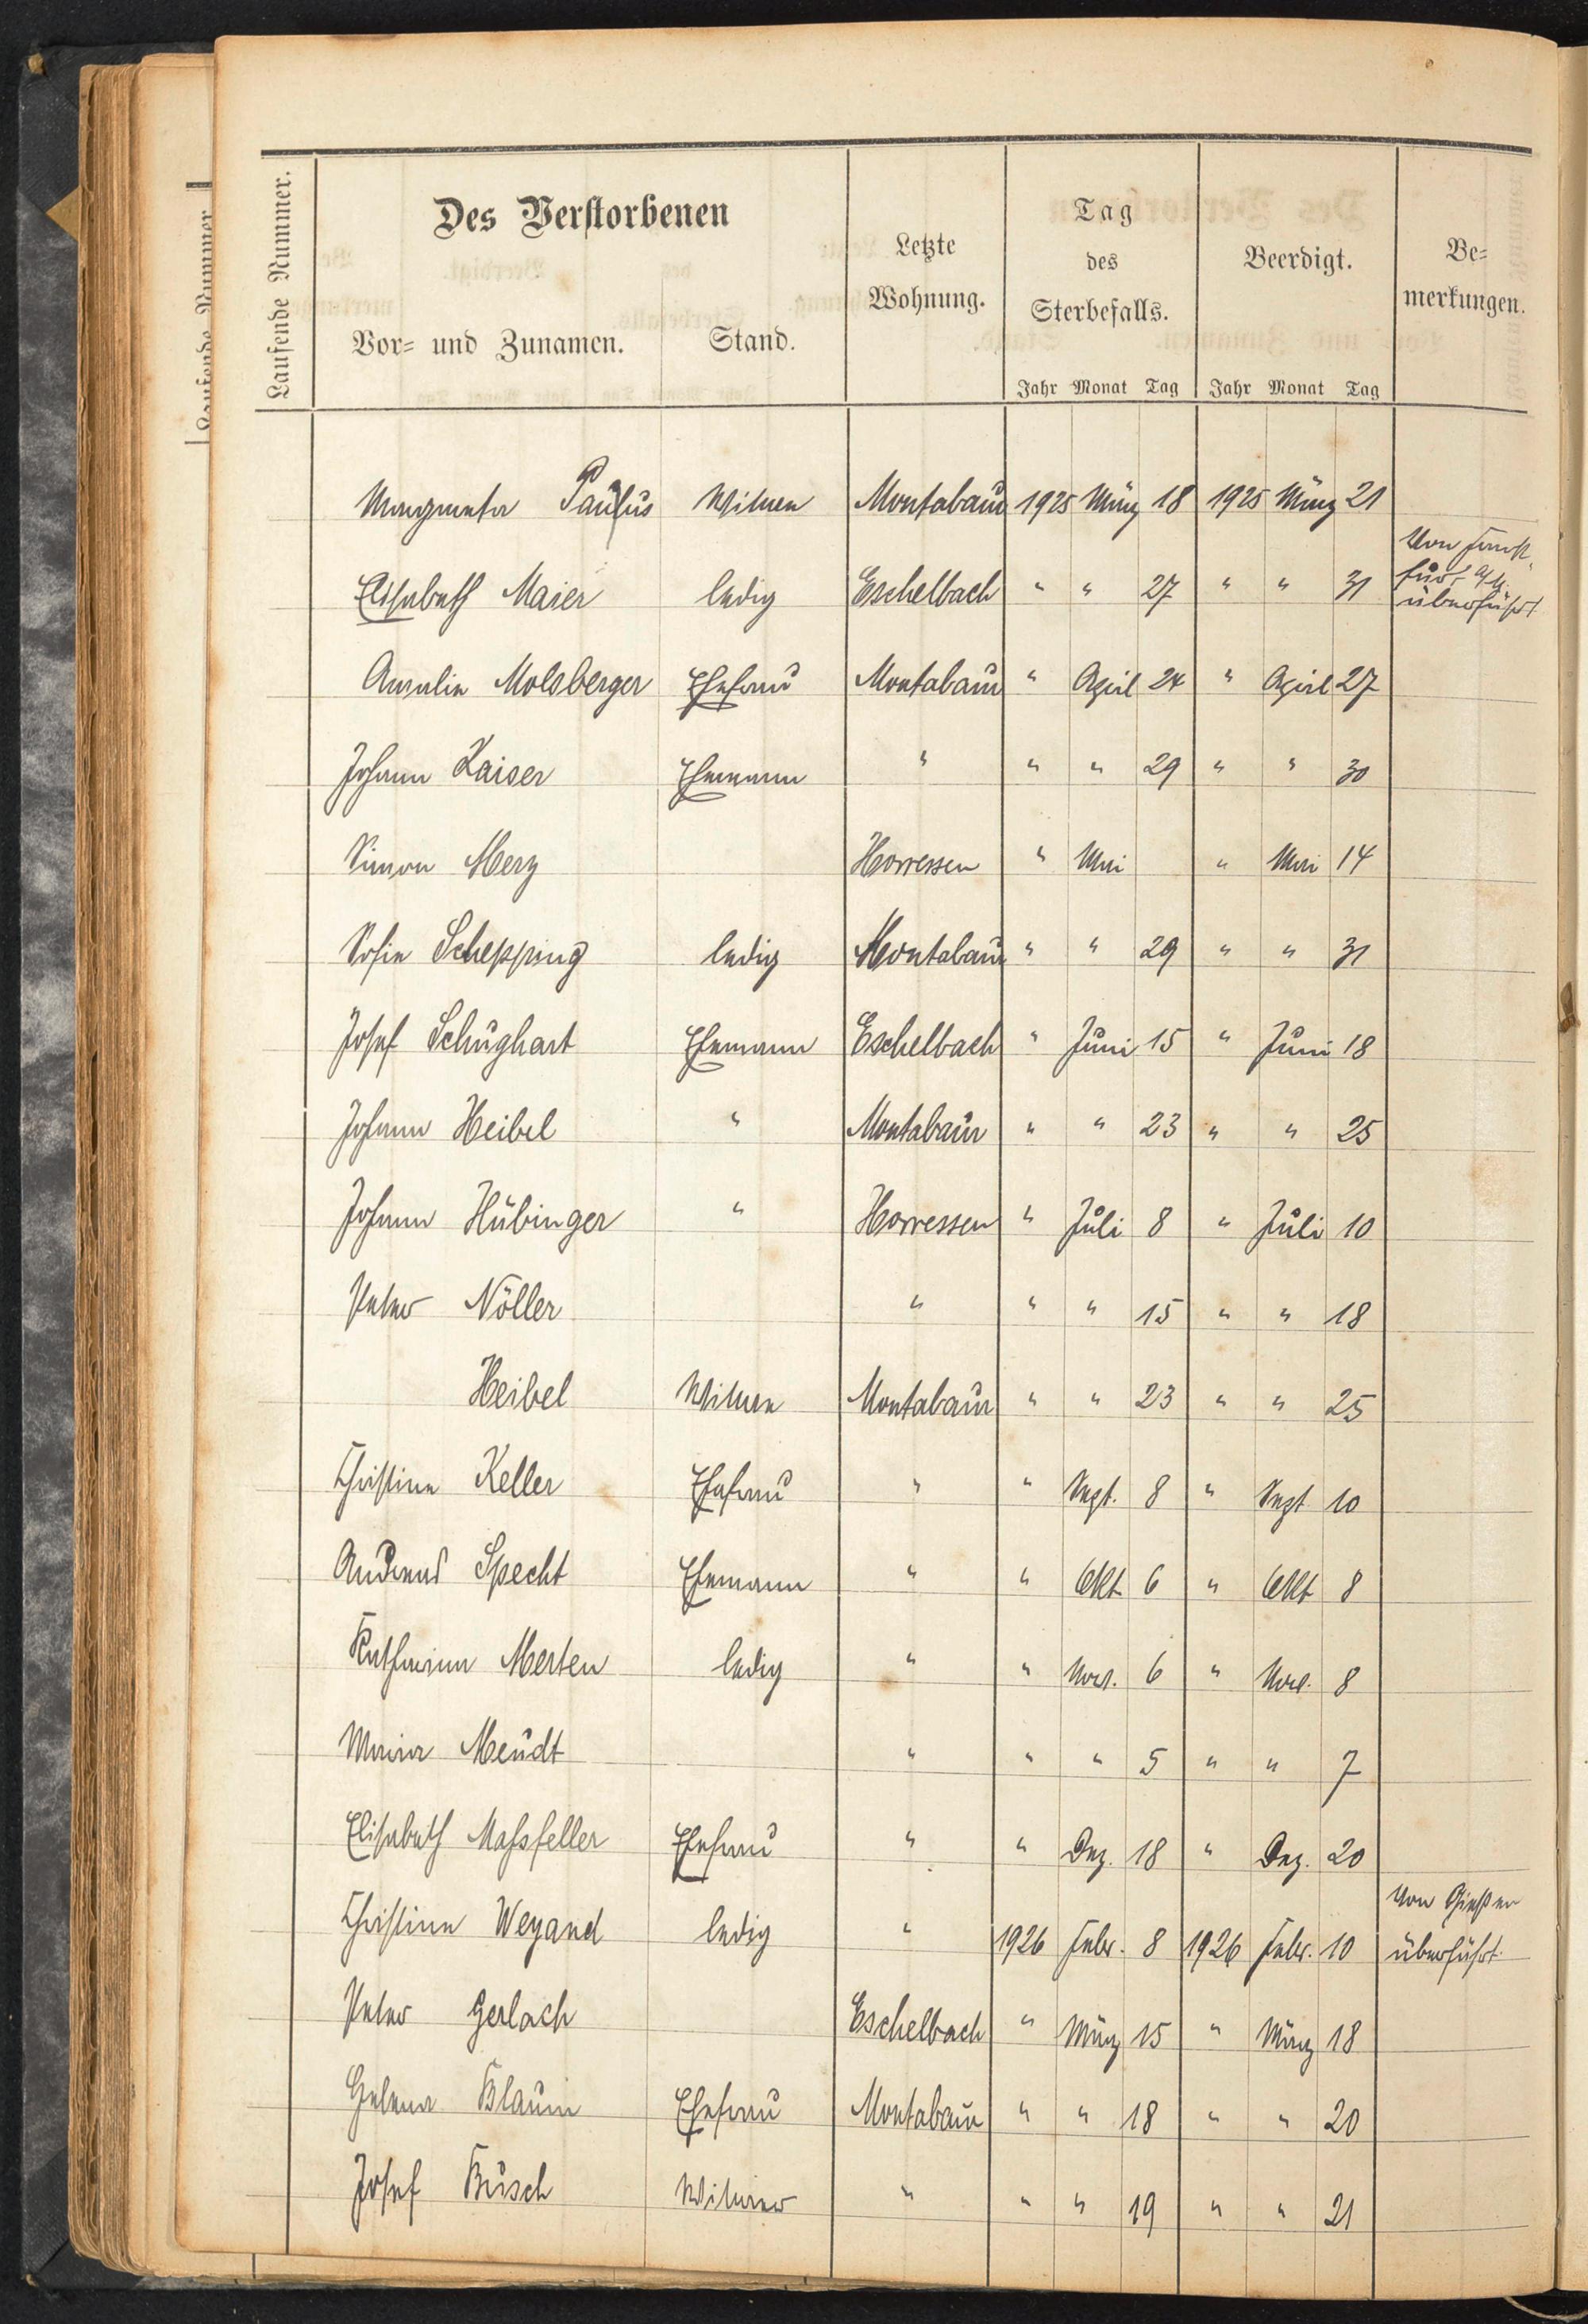 Laufende Nummer
Laufende Nummer.
Des Verstorbenen
Vor- und Zunamen.
Stand.
Letzte
Wohnung.
Tag
des
Sterbefalls.
Beerdigt.
Be-
merkungen.
Jahr Monat Tag Jahr Monat Tag
Margareta Paulus Witwe Montabaur 1925 März 18 1925 März 21
Von Frank-
furt a/M.
überführt
Elisabeth Maier ledig Eschelbach " " 27 " " 31
Amalie Molsberger Ehefrau Montabaur " April 24 " April 27
Johann Kaiser Ehemann " " " 29 " " 30
Simon Merz Horressen " Mai " Mai 14
Sofie Schepping ledig Montabaur " " 29 " " 31
Josef Schughart Ehemann Eschelbach " Juni 15 " Juni 18
Johann Heibel " Montabaur " " 23 " " 25
Johann Hübinger " Horressen " Juli 8 " Juli 10
Peter Nöller " " " 15 " " 18
Heibel Witwe Montabaur " " 23 " " 25
Christine Keller Ehefrau " " Sept. 8 " Sept 10
Andreas Specht Ehemann " " Okt. 6 " Okt 8
Katharina Merten ledig " " Nov. 6 " Nov. 8
Maria Meudt " " " 5 " " 7
Elisabeth Massfeller Ehefrau " " Dez. 18 " Dez. 20
Von Gießen
Christine Weyand ledig " 1926 Febr. 8 1926 Febr. 10 überführt.
Peter Gerlach Eschelbach " März 15 " März 18
Helena Blaum Ehefrau Montabaur " " 18 " " 20
Josef Busch Witwer " " " 19 " " 21